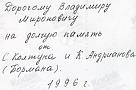 Дорогому Владимиру
Мироновичу
на долгую память
от
С. Колтуна и К. Андрианова
(Бормана).
1996 г.